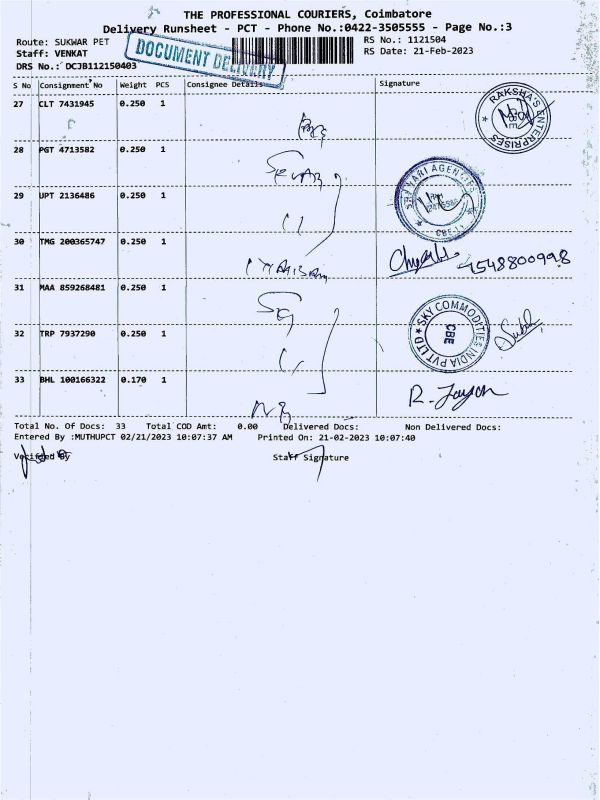 THE PROFESSIONAL COURIERS, Coimbatore
Delivery Runsheet - PCT - Phone No.:0422-3505555 - Page No.:3
Route: SUKWAR PET
RS No.: 1121504
Staff: VENKAT
RS Date: 21-Feb-2023
DRS No.: DCJB112150403
DOCUMENT DELIVERY
S No Consignment No Weight PCS Consignee Details Signature
27 CLT 7431945 0.250 1
RAKSHA'S ENTERPRISES
28 PGT 4713582 0.250 1
29 UPT 2136486 0.250 1
AGENCIES
30 TMG 200365747 0.250 1
9548800998
31 MAA 859268481 0.250 1
SG
32 TRP 7937290 0.250 1
SKY COMMODITIES INDIA PVT LTD
CBE
33 BHL 100166322 0.170 1
R. Jayan
Total No. Of Docs: 33 Total COD Amt: 0.00 Delivered Docs: Non Delivered Docs:
Entered By :MUTHUPCT 02/21/2023 10:07:37 AM Printed On: 21-02-2023 10:07:40
Verified By Staff Signature